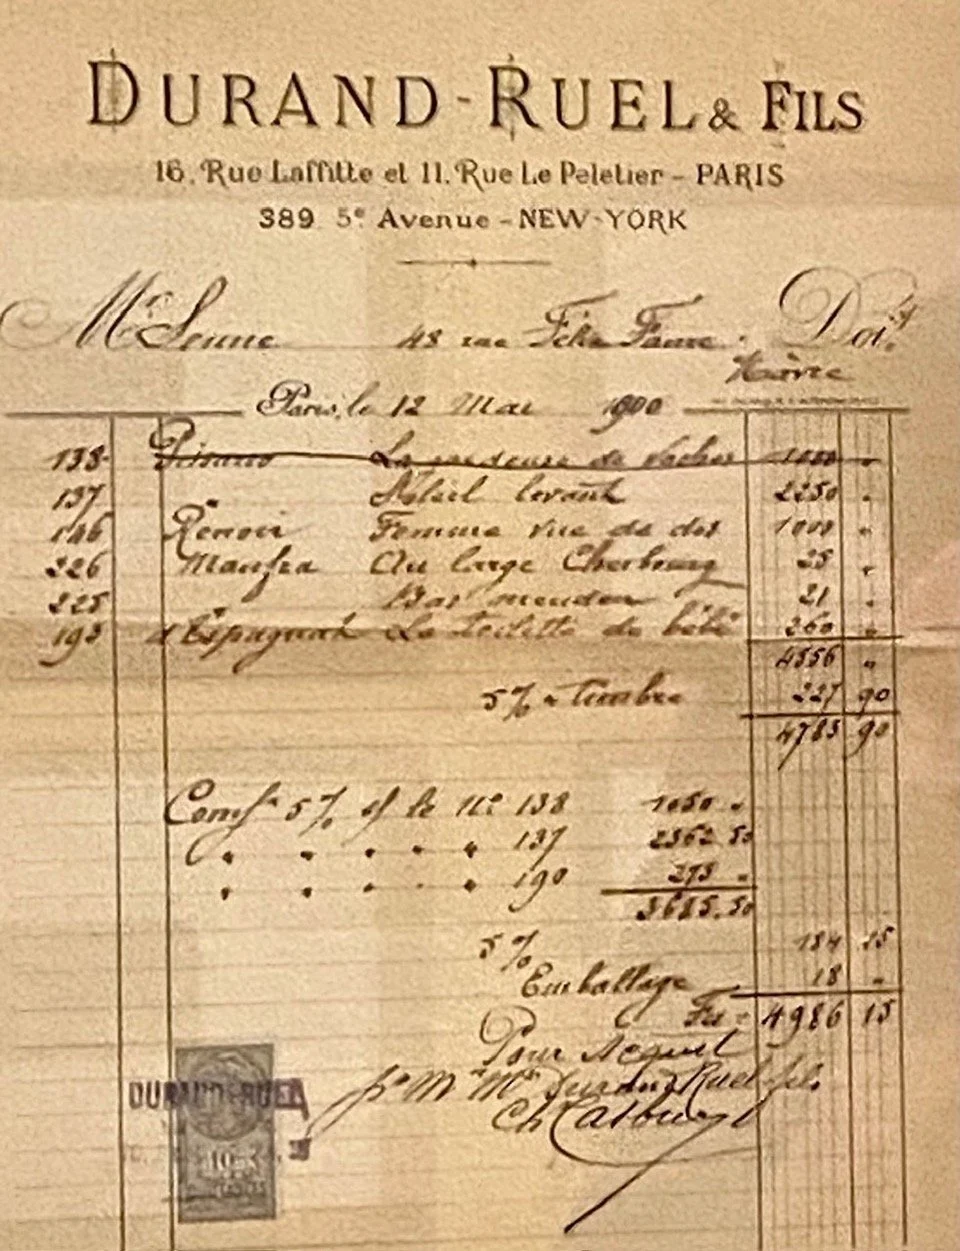 DURAND-RUEL & FILS
16, Rue Laffitte et 11, Rue Le Peletier - PARIS
389 5e Avenue - NEW-YORK
Mr Senne 48 rue Félix Faure. Doit
Havre
Paris, le 12 Mai 1900
138 Pissarro La gardeuse de vaches 1000 "
137 Soleil levant 2250 "
146 Renoir Femme vue de dos 1000 "
226 Maufra Au large Cherbourg 25 "
225 Bas meudon 21 "
190 d'Espagnat La toilette de bébé 260 "
4556 "
5% timbre 227 90
4783 90
Comson 5% s/ le No 138 1050 "
" " " " " 137 2362.50
" " " " " 190 273 "
3685.50
5% 184 25
Emballage 18 "
Frs = 4986 15
Pour Acquit
pr Mrs Durand-Ruel fils
DURAND-RUEL
10